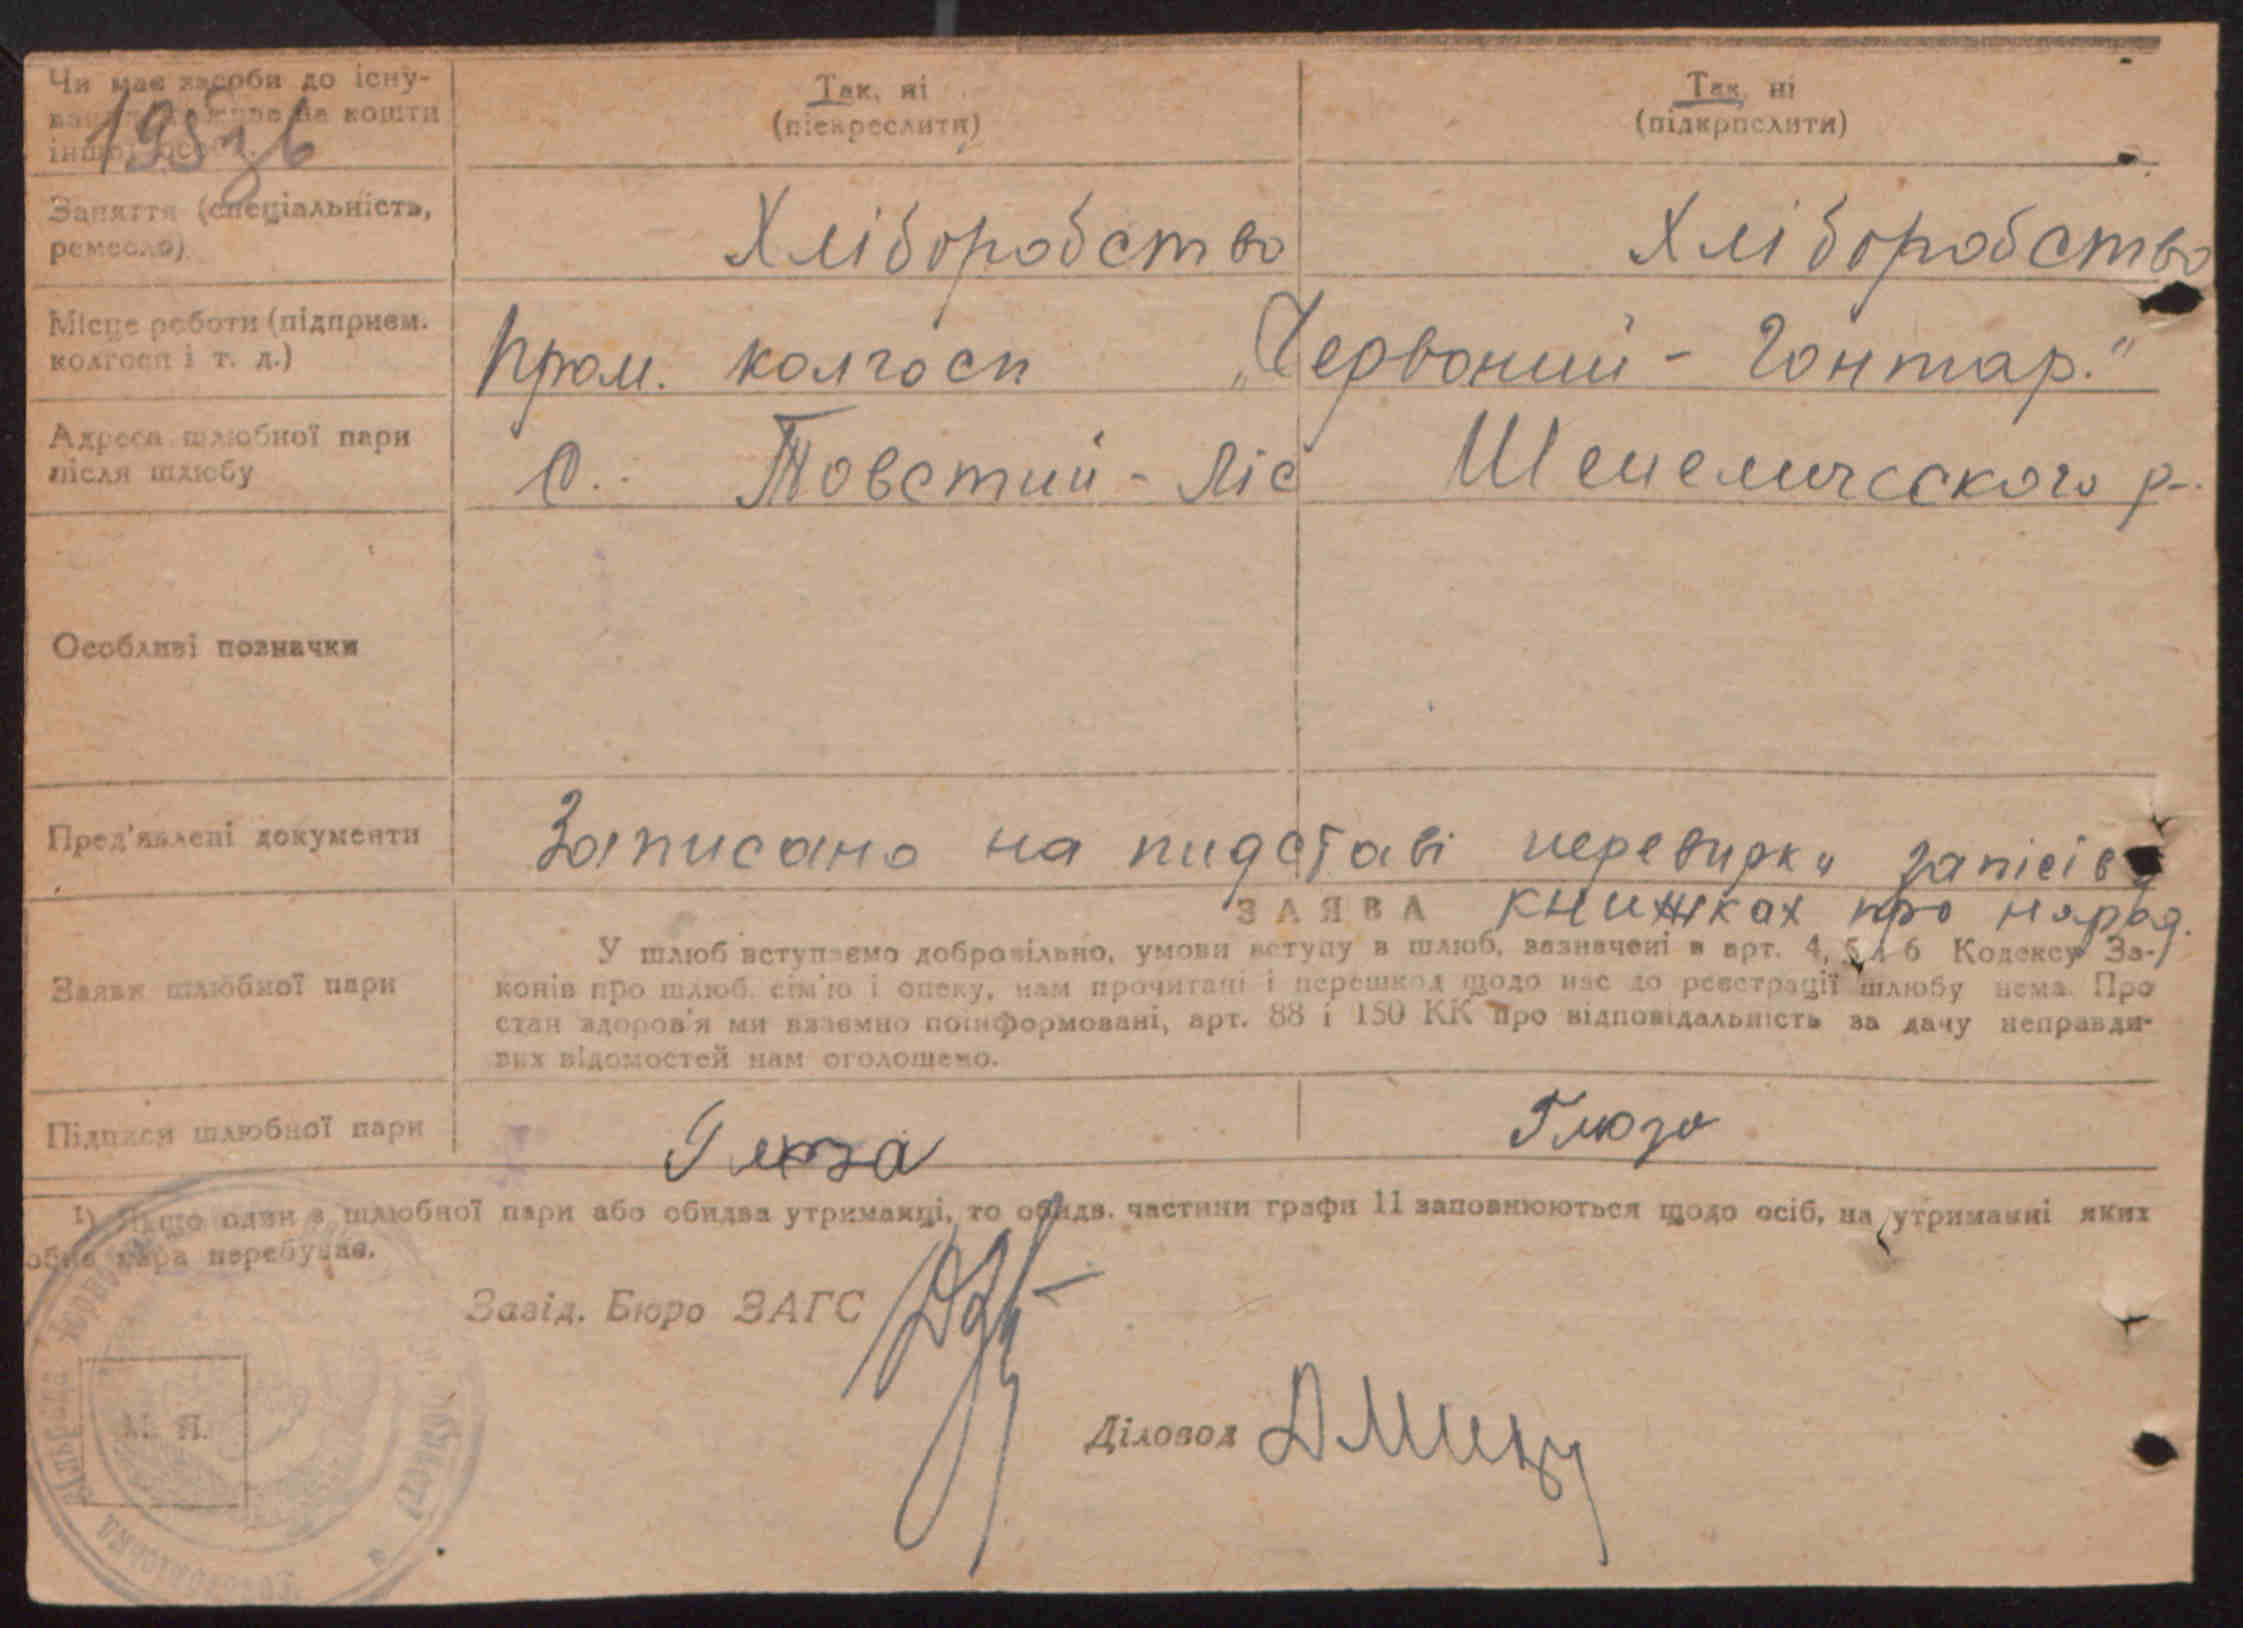 Чи має засоби до існу-
кошти
Так, ні
(підкреслити)
Так, ні
(підкреслити)
Заняття (спеціальність,
ремесло)
Хліборобство
Хліборобство
Місце роботи (підприєм.
колгосп і т. д.)
Пром. колгосп „Червоний - Гонтар."
Адреса шлюбної пари
після шлюбу
с. Товстий - Ліс Шепелического р-.
Особливі позначки
Пред'явлені документи
Записано на пидставі перевирки запісів у
книжках про народ.
ЗАЯВА
Заява шлюбної пари
У шлюб вступаємо добровільно, умови вступу в шлюб, зазначені в арт. 4, 5 і 6 Кодексу За-
конів про шлюб, сім'ю і опеку, нам прочитані і перешкод щодо нас до реєстрації шлюбу нема. Про
стан здоров'я ми взаємно поінформовані, арт. 88 і 150 КК про відповідальність за дачу неправди-
вих відомостей нам оголошено.
Підписи шлюбної пари
Глюза
Глюзо
1) Якщо один з шлюбної пари або обидва утриманці, то обидв. частини графи 11 заповнюються щодо осіб, на утриманні яких
пара перебуває.
Завід. Бюро ЗАГС
Діловод
М. П.